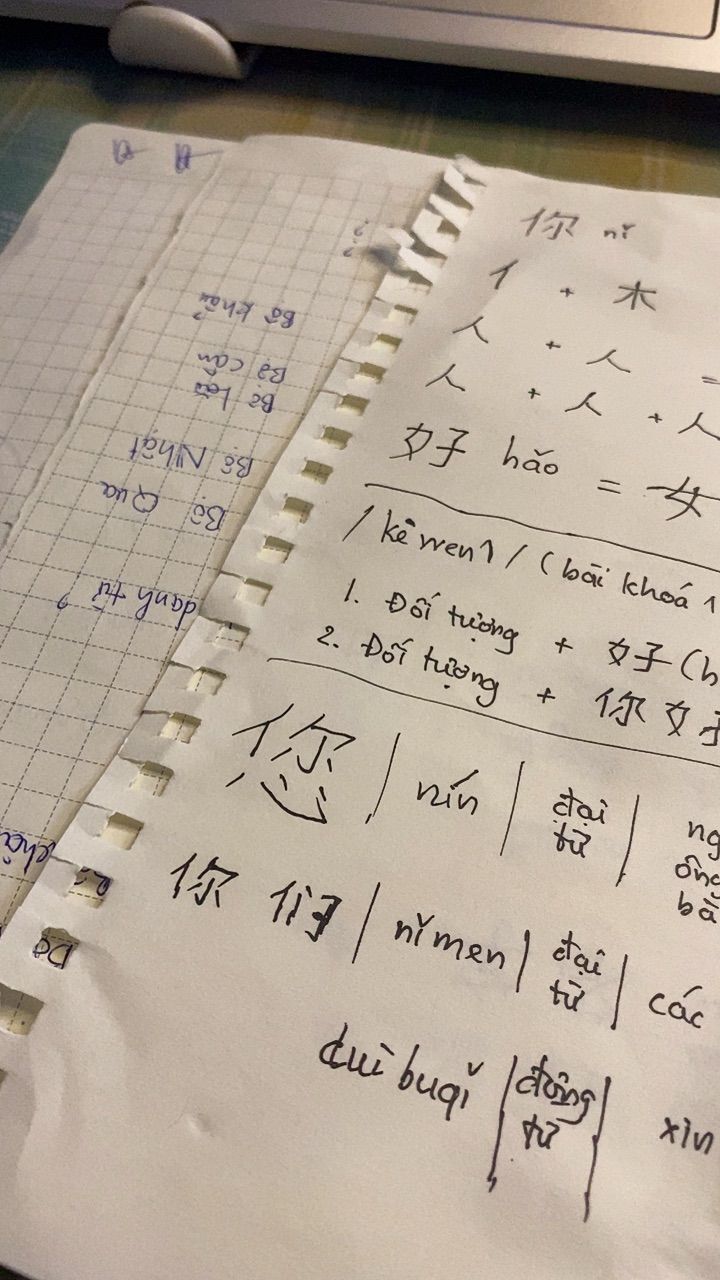 你 nǐ
亻 + 木
人 + 人 =
人 + 人 + 人
好 hǎo = 女
/ kè wen 1 / (bài khoá 1
1. Đối tượng + 好 (h
2. Đối tượng + 你好
您 | nín | đại từ | ng
ông
bà
你 们 | nǐ men | đại từ | các
duì buqǐ | động từ | xin
Bộ khẩu
Bộ cân
Bộ Nhật
Bộ Qua
danh từ ?